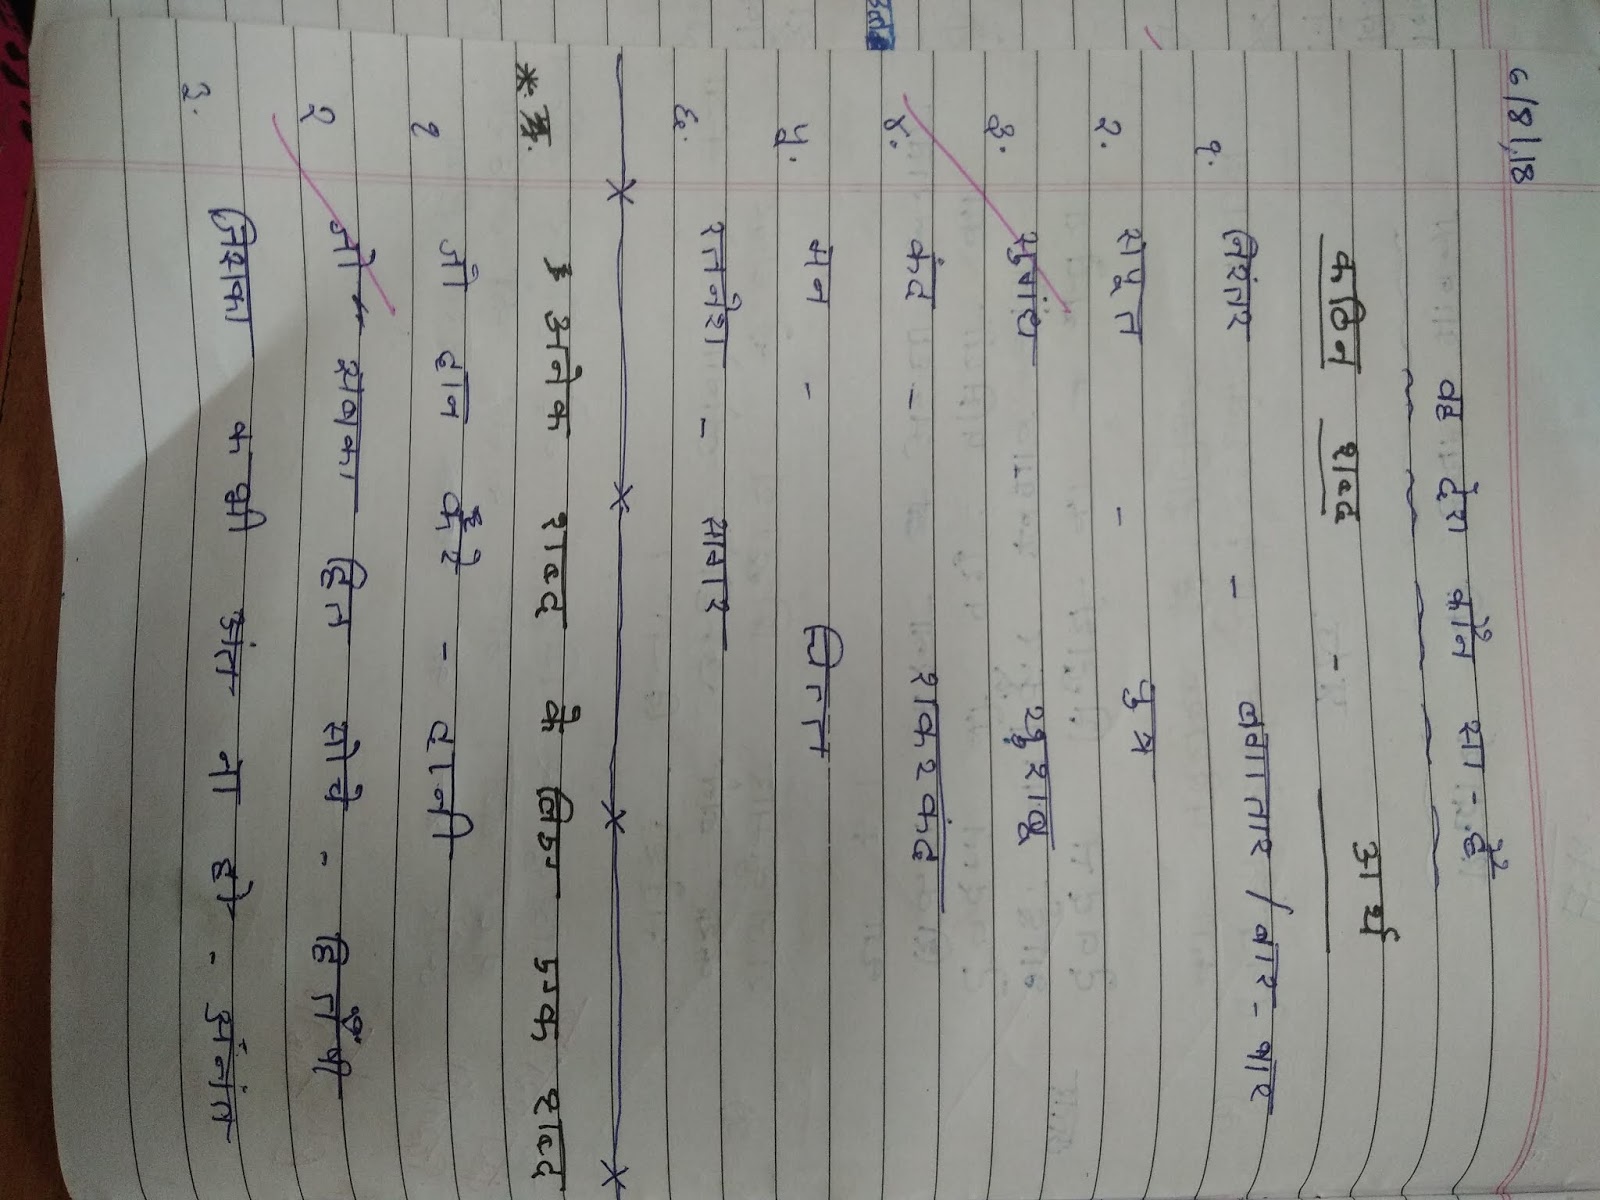 6/8/18
वह देश कौन सा - है
कठिन शब्द - अर्थ
१. निरंतर - लगातार / बार - बार
२. सपूत - पुत्र
३. सुगंध खुशबू
४. कंद - शकरकंद
५. मन - चित्त
६. रत्नेश - सागर
* अनेक शब्द के लिए एक शब्द
१ जो दान करे - दानी
२ जो सबका हित सोचे - हितैषी
३. जिसका कभी अंत ना हो - अनंत